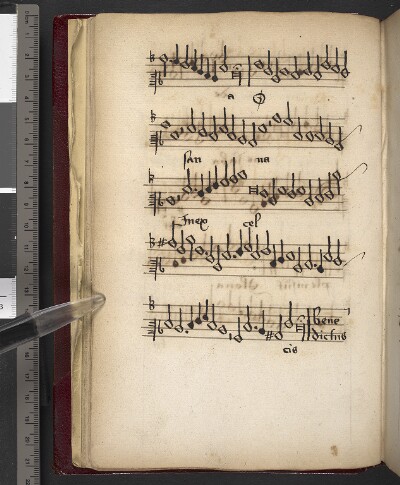 a O
san na
Inex cel
bene
dictus
cis